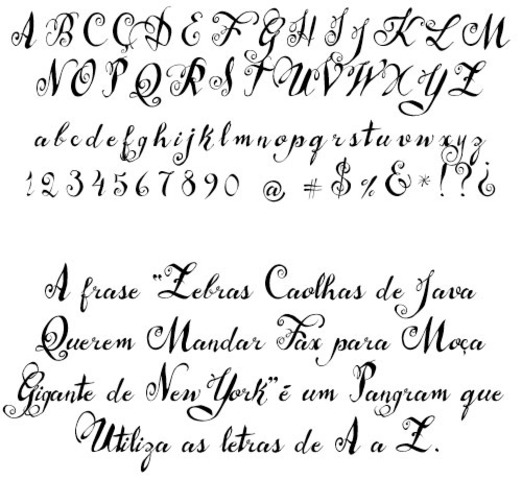 A B C Ç D E F G H I J K L M
N O P Q R S T U V W X Y Z
a b c d e f g h i j k l m n o p q r s t u v w x y z
1 2 3 4 5 6 7 8 9 0 @ # $ % & * ! ? ¿
A frase "Zebras Caolhas de Java
Querem Mandar Fax para Moça
Gigante de New York" é um Pangram que
Utiliza as letras de A a Z.